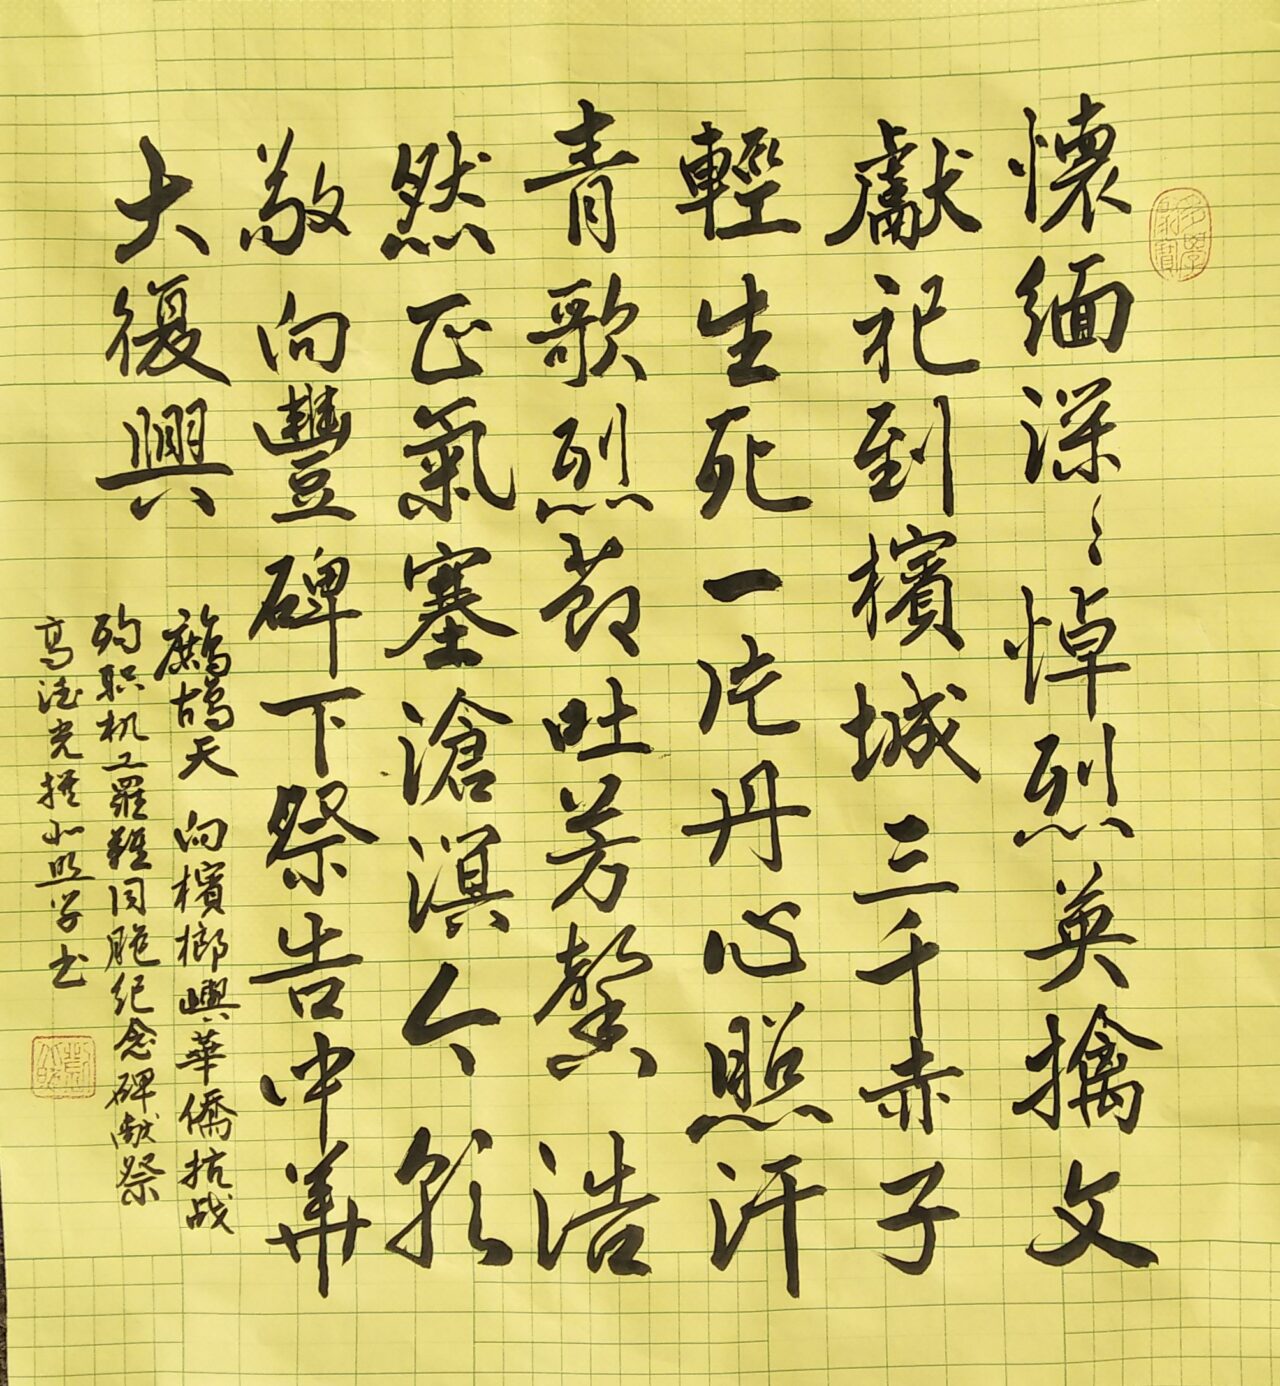 懷緬深〻悼烈英擒文
獻祀到檳城三千赤子
輕生死一片丹心照汗
青歌烈節吐芳馨浩
然正氣塞滄溟今朝
敬向豐碑下祭告中華
大復興
鷓鴣天 向檳榔嶼華僑抗战
殉职机工罹難同胞纪念碑献祭
高德光撰 学书